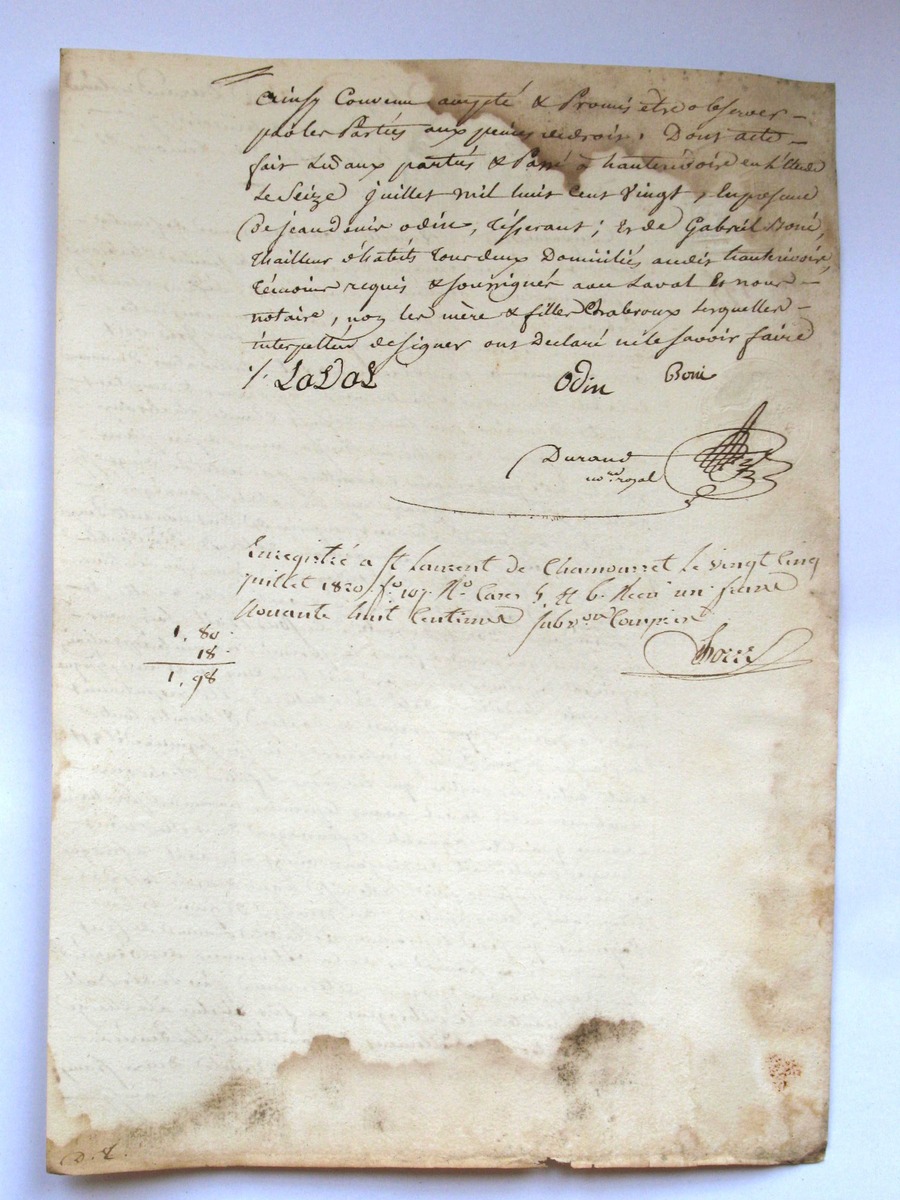 Ainsy Convenu accepté & Promis être observer –
par les Parties aux peines de droit. Dont acte –
fait Lû aux parties & Passé à hauterivoire en L'étude
Le Seize juillet mil huit cent vingt, En presence
De jean denis odin, tisserant; et de Gabriel Boni,
thailleur d'habits tous deux Domiciliés audit hauterivoire,
témoins requis & soussignés avec Laval Et nous –
notaire, non les mère & filles Chabroux Lesquelles –
interpellés de signer ont Déclaré ne le savoir faire
./. LaVaL Odin Boni
Durand
no.re royal
Enregistré a St Laurent de Chamousset Le vingt Cinq
juillet 1820 fo. 107. Ro. Cases 5 et 6. Recu un franc
Nonante huit Centimes subvon Comprise
1, 80.
18.
1, 98